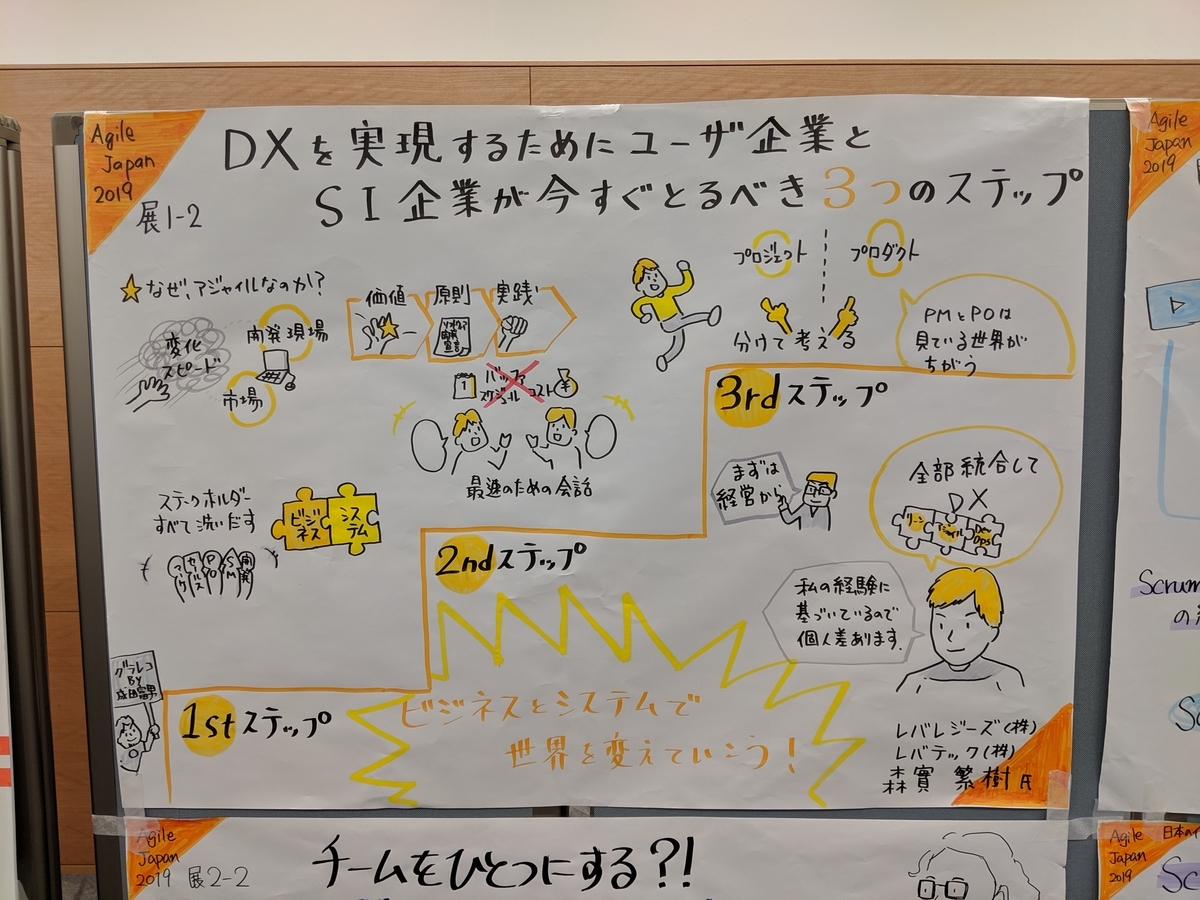 Agile
Japan
2019
展1-2
DXを実現するためにユーザ企業と
SI企業が今すぐとるべき3つのステップ
なぜ、アジャイルなのか?
変化
スピード
開発現場
市場
価値
原則
実践
宣言
バッファ
スケジュール
コスト
¥
1
最速のための会話
プロジェクト
プロダクト
分けて考える
PMとPOは
見ている世界が
ちがう
ステークホルダー
すべて洗いだす
ビジネス
システム
PO
SM
開発
3rdステップ
まずは
経営から
全部統合して
DX
リーン
アジャイル
DevOps
2ndステップ
私の経験に
基づいているので
個人差あります.
グラレコ
BY
1stステップ
ビジネスとシステムで
世界を変えていこう!
レバレジーズ(株)
レバテック(株)
森實 繁樹氏
Agile
Japan
2019
展2-2
チームをひとつにする?!
Agile
Japan
2019
Scrum
の
Agile
Japan
2019
日本の
Sc